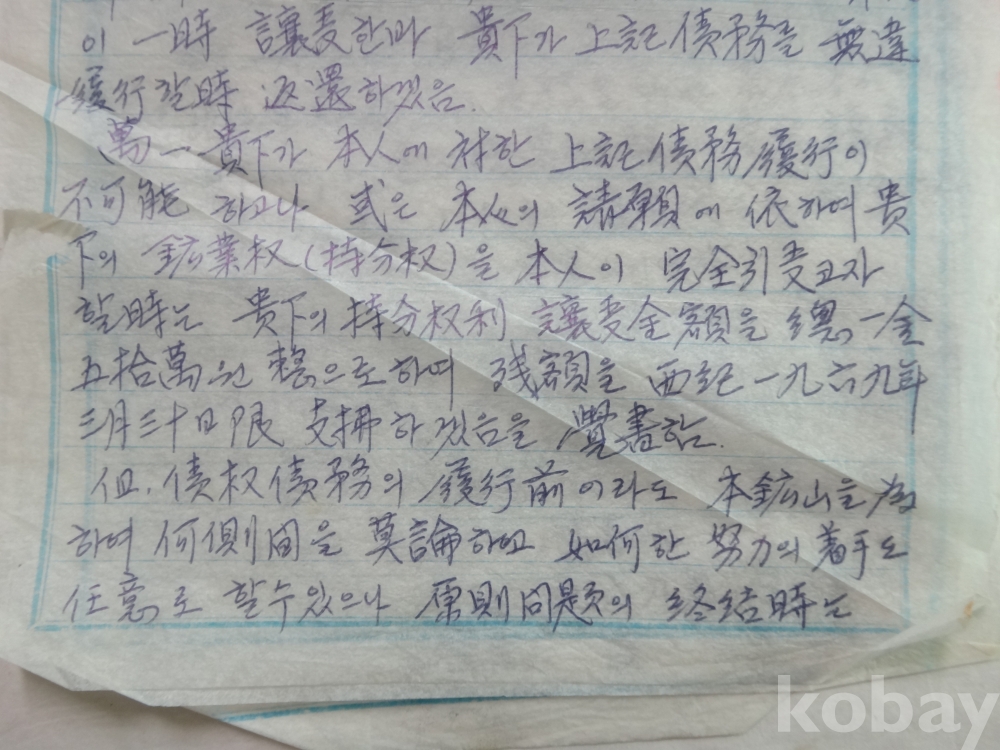 이 一時 讓受한바 貴下가 上記 債務를 無違
履行할時 返還하겠음.
萬一 貴下가 本人에 対한 上記 債務履行이
不可能 하고나 或은 本人의 請願에 依하여 貴
下의 鉱業权(持分权)을 本人이 完全引受코자
할時는 貴下의 持分权利 讓受金額을 總一金
五拾萬원 整으로하여 残額을 西紀 一九六九年
三月三十日限 支拂하겠음을 覺書함.
但, 債权債務의 履行前이라도 本鉱山을 為
하여 何側間을 莫論하고 如何한 努力의 着手도
任意로 할수있으나 原則問題의 終結時는
kobay